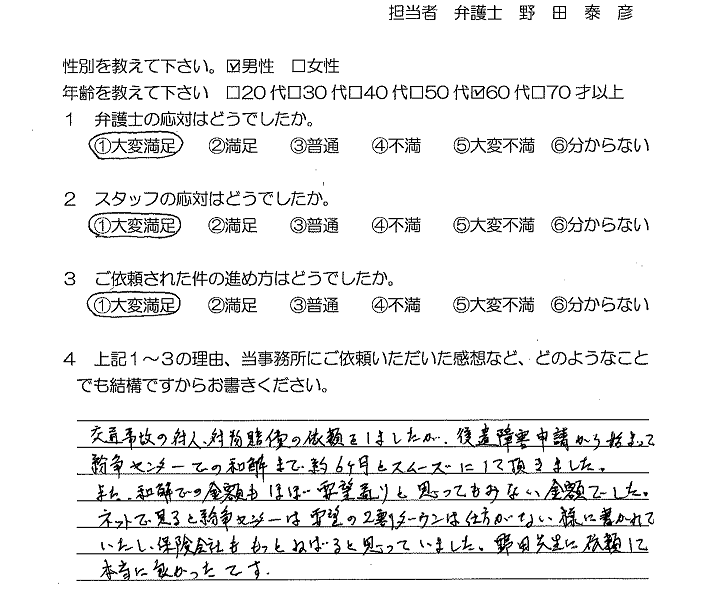 担当者 弁護士 野 田 泰 彦
性別を教えて下さい。☑男性 □女性
年齢を教えて下さい □20代□30代□40代□50代☑60代□70才以上
1 弁護士の応対はどうでしたか。
①大変満足 ②満足 ③普通 ④不満 ⑤大変不満 ⑥分からない
2 スタッフの応対はどうでしたか。
①大変満足 ②満足 ③普通 ④不満 ⑤大変不満 ⑥分からない
3 ご依頼された件の進め方はどうでしたか。
①大変満足 ②満足 ③普通 ④不満 ⑤大変不満 ⑥分からない
4 上記1~3の理由、当事務所にご依頼いただいた感想など、どのようなこと
でも結構ですからお書きください。
交通事故の対人、対物賠償の依頼をしましたが、後遺障害申請から始まって
紛争センターでの和解まで約6ヶ月とスムーズにして頂きました。
また、和解での金額もほぼ要望通りと思ってもみない金額でした。
ネットで見ると紛争センターは要望の2割ダウンは仕方がない様に書かれて
いたし、保険会社ももっとねばると思っていました。野田先生に依頼して
本当に良かったです。